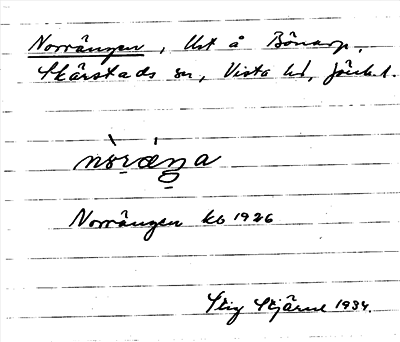 Norrängen, Ust å Bönarp,
Skärstads sn, Vista hd, Jönk. l.
nòræ̀ŋa
Norrängen kb 1926
Stig Stjärne 1934.